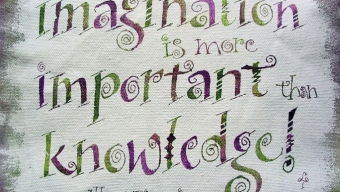 imagination
is more
important than
knowledge!